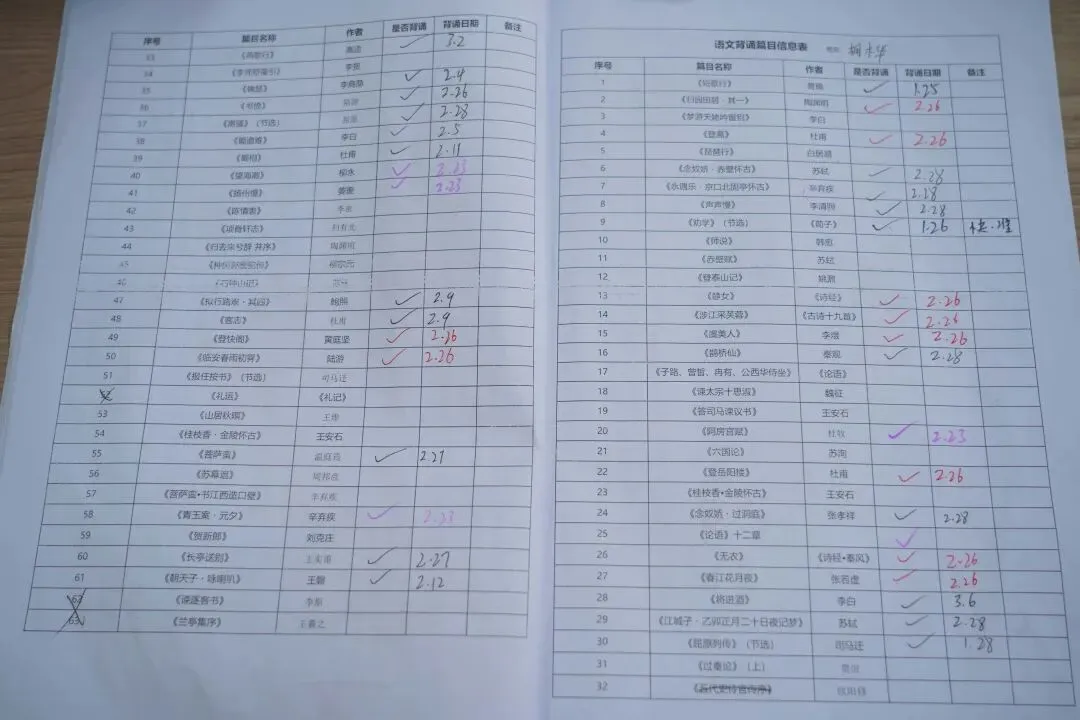 序号 篇目名称 作者 是否背诵 背诵日期 备注
33 《燕歌行》 高适 ✓ 3.2
34 《李凭箜篌引》 李贺
35 《锦瑟》 李商隐 ✓ 2.4
36 《书愤》 陆游 ✓ 2.26
37 《离骚》（节选） 屈原 ✓ 2.28
38 《蜀道难》 李白 ✓ 2.5
39 《蜀相》 杜甫 ✓ 2.11
40 《望海潮》 柳永 ✓ 2.23
41 《扬州慢》 姜夔 ✓ 2.23
42 《陈情表》 李密
43 《项脊轩志》 归有光
44 《归去来兮辞 并序》 陶渊明
45 《种树郭橐驼传》 柳宗元
46 《石钟山记》 苏轼
47 《拟行路难·其四》 鲍照 ✓ 2.9
48 《客至》 杜甫 ✓ 2.9
49 《登快阁》 黄庭坚 ✓ 2.26
50 《临安春雨初霁》 陆游 ✓ 2.26
51 《报任安书》（节选） 司马迁
52 《礼运》 《礼记》
53 《山居秋暝》 王维
54 《桂枝香·金陵怀古》 王安石
55 《菩萨蛮》 温庭筠 ✓ 2.27
56 《苏幕遮》 周邦彦
57 《菩萨蛮·书江西造口壁》 辛弃疾
58 《青玉案·元夕》 辛弃疾 ✓ 2.23
59 《贺新郎》 刘克庄
60 《长亭送别》 王实甫 ✓ 2.27
61 《朝天子·咏喇叭》 王磐 ✓ 2.12
62 《谏逐客书》 李斯
63 《兰亭集序》 王羲之
语文背诵篇目信息表
序号 篇目名称 作者 是否背诵 背诵日期 备注
1 《短歌行》 曹操 ✓ 1.25
2 《归园田居·其一》 陶渊明 ✓ 2.26
3 《梦游天姥吟留别》 李白
4 《登高》 杜甫 ✓ 2.26
5 《琵琶行》 白居易
6 《念奴娇·赤壁怀古》 苏轼 ✓ 2.28
7 《永遇乐·京口北固亭怀古》 辛弃疾 ✓ 2.28
8 《声声慢》 李清照 ✓ 2.28
9 《劝学》（节选） 《荀子》 ✓ 1.26
10 《师说》 韩愈
11 《赤壁赋》 苏轼
12 《登泰山记》 姚鼐
13 《静女》 《诗经》 ✓ 2.26
14 《涉江采芙蓉》 《古诗十九首》 ✓ 2.26
15 《虞美人》 李煜 ✓ 2.26
16 《鹊桥仙》 秦观 ✓ 2.28
17 《子路、曾皙、冉有、公西华侍坐》 《论语》
18 《谏太宗十思疏》 魏征
19 《答司马谏议书》 王安石
20 《阿房宫赋》 杜牧 ✓ 2.23
21 《六国论》 苏洵
22 《登岳阳楼》 杜甫 ✓ 2.26
23 《桂枝香·金陵怀古》 王安石
24 《念奴娇·过洞庭》 张孝祥 ✓ 2.28
25 《论语》十二章 ✓
26 《无衣》 《诗经·秦风》 ✓ 2.26
27 《春江花月夜》 张若虚 ✓ 2.26
28 《将进酒》 李白 ✓ 3.6
29 《江城子·乙卯正月二十日夜记梦》 苏轼 ✓ 2.28
30 《屈原列传》（节选） 司马迁 ✓ 1.28
31 《过秦论》（上） 贾谊
32 《五代史伶官传序》 欧阳修